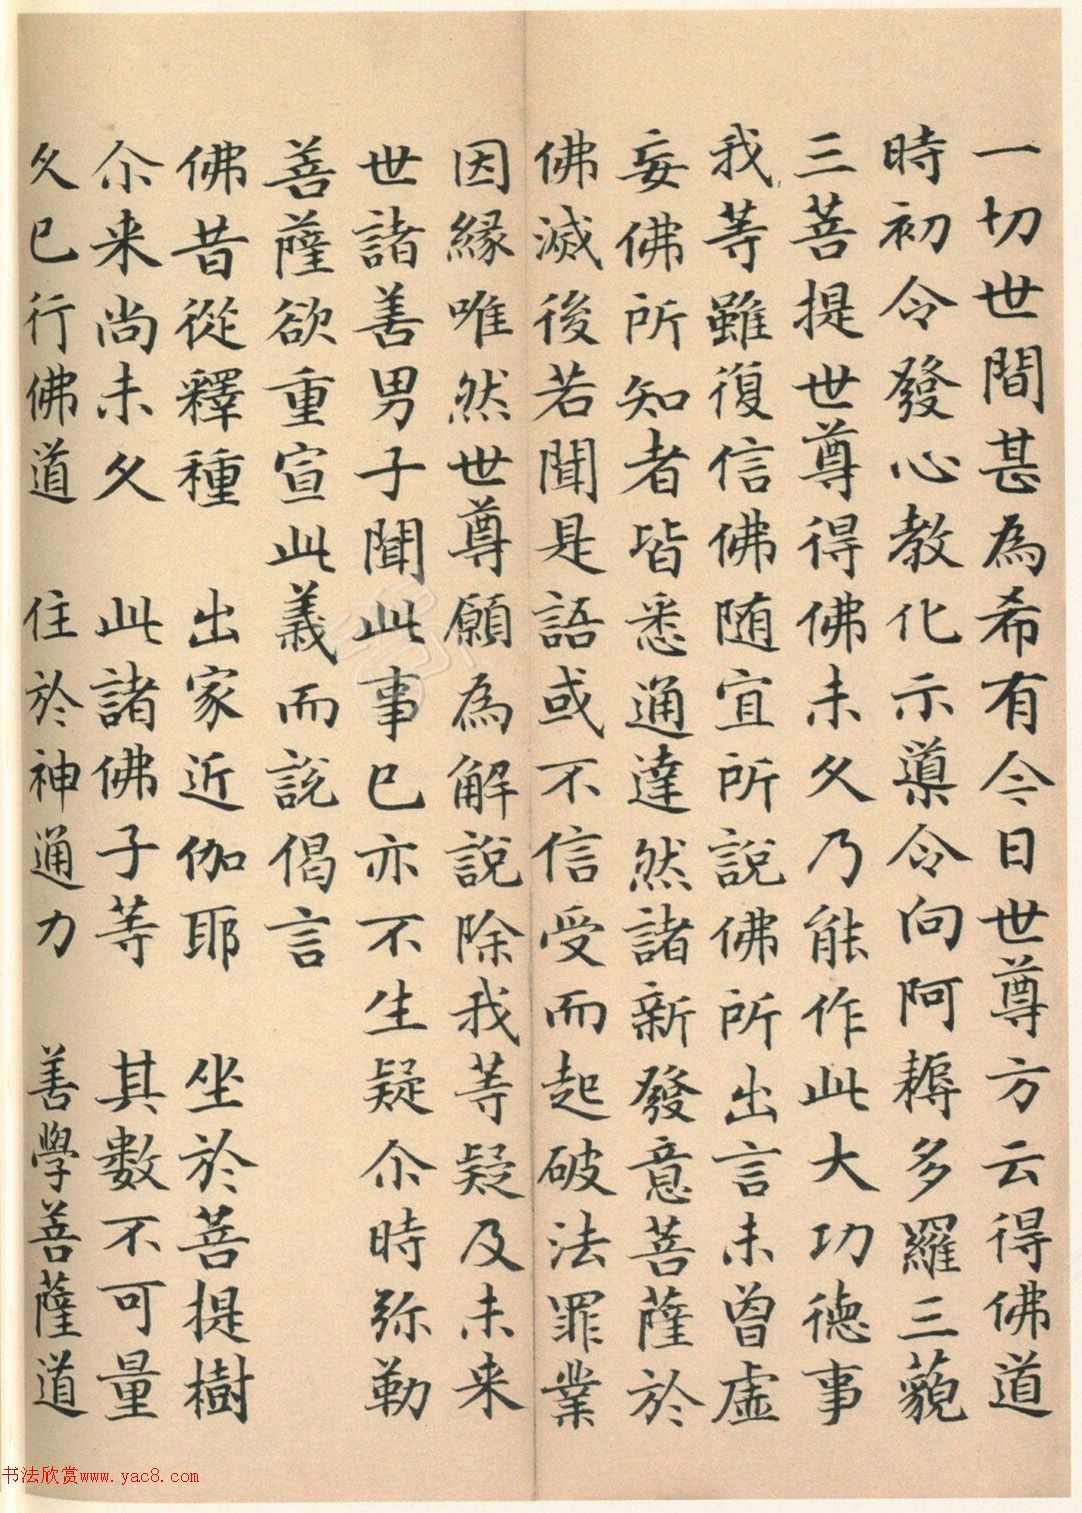 一切世間甚為希有今日世尊方云得佛道
時初令發心教化示導令向阿耨多羅三藐
三菩提世尊得佛未久乃能作此大功德事
我等雖復信佛随宜所說佛所出言未曾虛
妄佛所知者皆悉通達然諸新發意菩薩於
佛滅後若聞是語或不信受而起破法罪業
因緣唯然世尊願為解說除我等疑及未来
世諸善男子聞此事已亦不生疑尒時弥勒
菩薩欲重宣此義而說偈言
佛昔從釋種 出家近伽耶 坐於菩提樹
尒来尚未久 此諸佛子等 其數不可量
久已行佛道 住於神通力 善學菩薩道
书法欣赏www.yac8.com